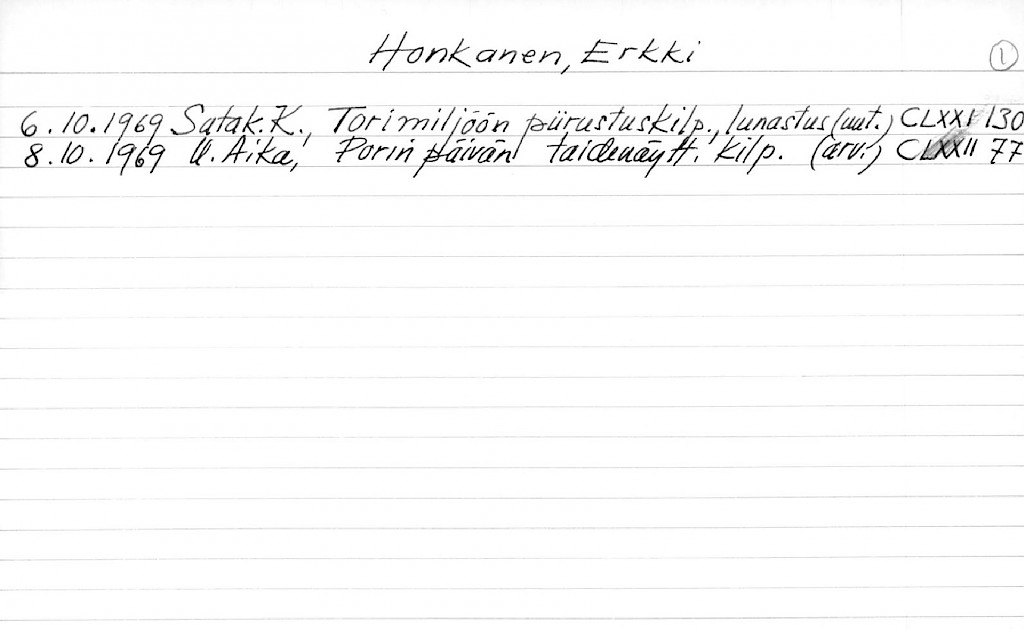 Honkanen, Erkki 1
6.10.1969 Satak. K., Torimiljöön piirustuskilp., lunastus (uut.) CLXXI 130
8.10.1969 U. Aika, Porin päivän taidenäytt. kilp. (arv.) CLXXII 77